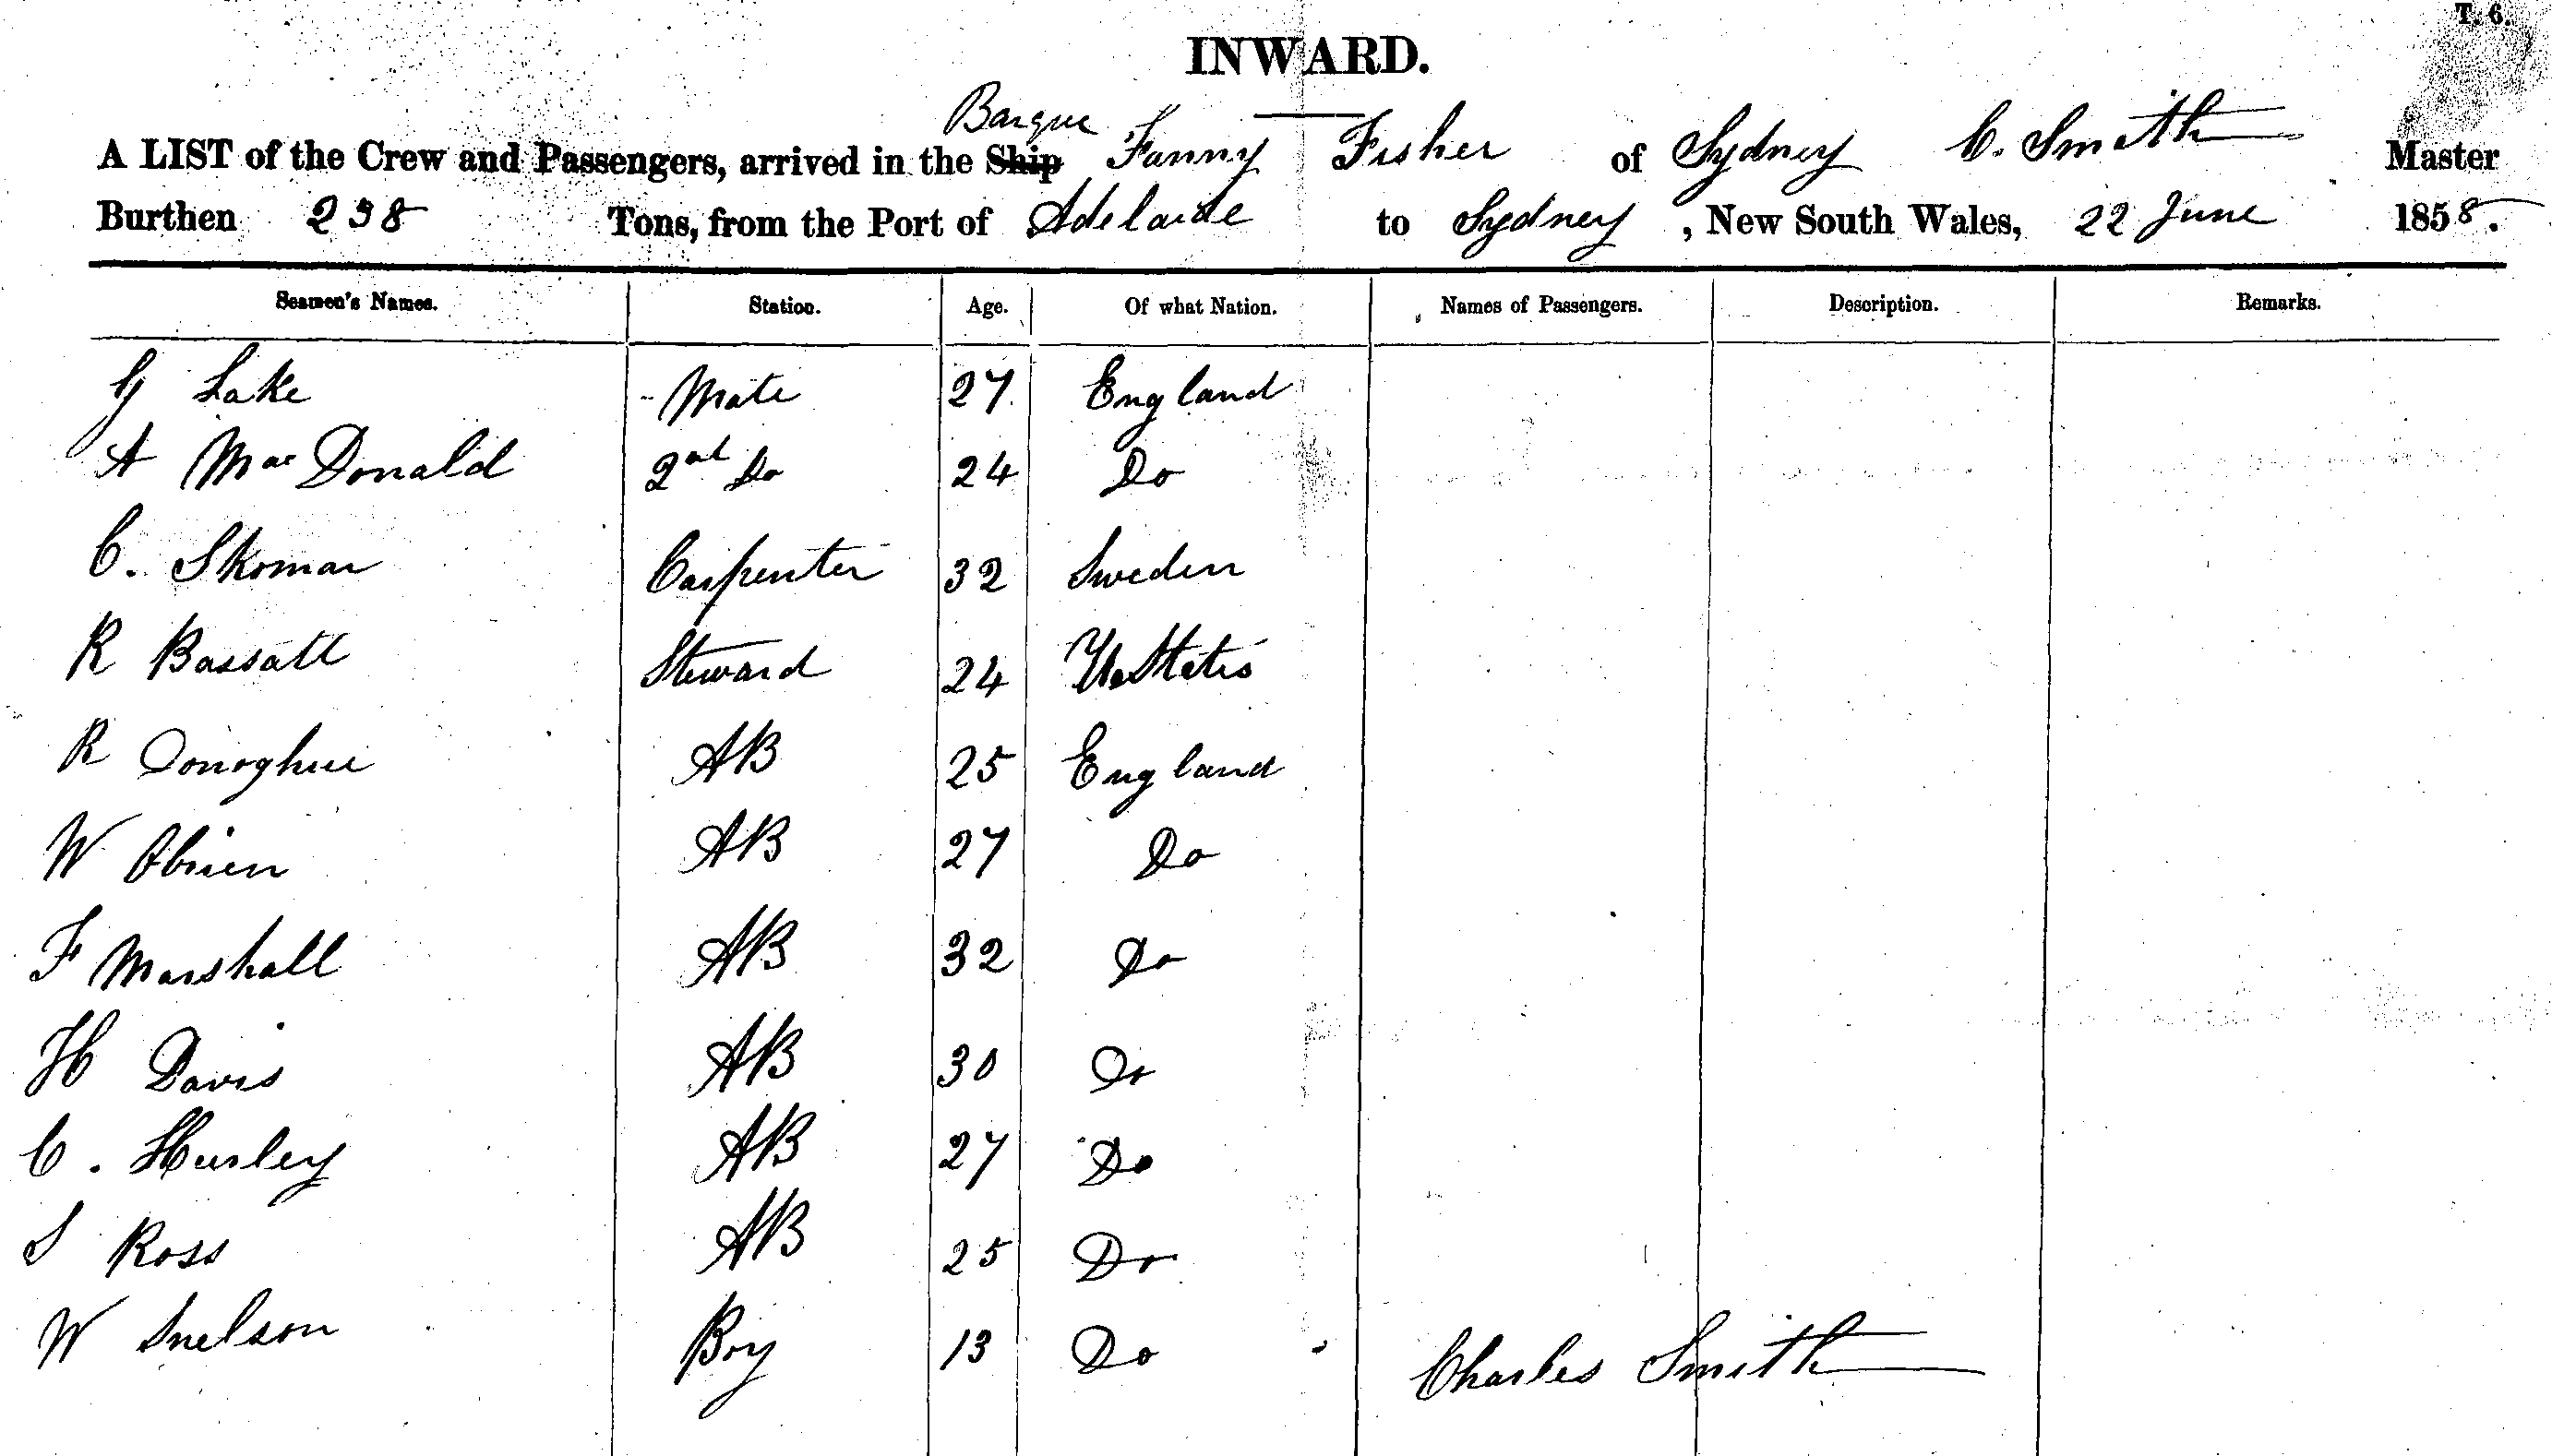 T. 6.
INWARD.
Barque
A LIST of the Crew and Passengers, arrived in the Ship Fanny Fisher of Sydney C. Smith Master
Burthen 238 Tons, from the Port of Adelaide to Sydney, New South Wales, 22 June 1858.
Seamen's Names. Station. Age. Of what Nation. Names of Passengers. Description. Remarks.
G Lake Mate 27 England
A MacDonald 2nd Do 24 Do
C. Skoman Carpenter 32 Sweden
R Bassatt Steward 24 U. States
R Donoghue AB 25 England
W Obrien AB 27 Do
F Marshall AB 32 Do
H Davis AB 30 Do
C. Hurley AB 27 Do
S Ross AB 25 Do
W Snelson Boy 13 Do
Charles Smith